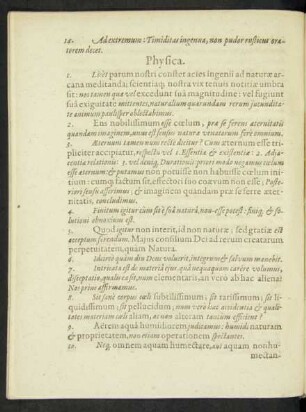 12. Ad extremum: Timiditas ingenua, non pudor rusticus ora-
torem decet.
Physica.
1. Licet parum nostri constet acies ingenii ad naturæ ar-
cana meditanda; scientiaq; nostra vix tenuis notitiæ umbra
sit: nos tamen quæ vel excedunt suâ magnitudine; vel fugiunt
suâ exiguitate mittentes, naturalium quarundam rerum jucundita-
te animum paulisper oblectabimus.
2. Ens nobilissimum esse cœlum, præ se ferens æternitatis
quandam imaginem,
3. Æternum tamen num rectè dicitur? Cum æternum esse tri-
pliciter accipiatur, respectu vel 1. Essentiæ & existentiæ: 2. Adja-
centiæ relationis: 3. vel denig, Durationis: priori modo negamus cœlum
esse æternum: & putamus non potuisse non habuisse cœlum ini-
tium: cumq; factum sit, effectori suo coævum non esse; Poste-
riori sensu affirmius; & imaginem quandam præ se ferre æter-
nitatis, concludimus.
4. Finitum igitur cùm sit suâ naturâ,
lutioni obnoxium est.
5. Quòd igitur non interit, id non naturæ; sed gratiæ est
acceptum ferendum. Majus consilium Dei ad rerum creatarum
perpetuitatem, quam Natura.
6. Idcircò quàm diu Deus voluerit, integrum & salvum manebit.
7. Intricata est de materia ejus, quâ nequaquam carere volumus,
disceptatio, qualis ea sit, num elementaris, an verò ab hac aliena?
Nos prius affirmamus.
8. Sit sanè corpus cæli subtilissimum; sit rarissimum; sit li-
quidissimum; sit pellucidum; num verò hæ accidentia & quali-
tates materiam cæli aliam, ac unam alteram tantùm efficient?
9. Aërem aquâ humidiorem judicamus: humidi naturam
& proprietatem, non etiam operationem spectantes.
10. Neg, omnem aquam humectare, aut aquam nonhu-
mectan-